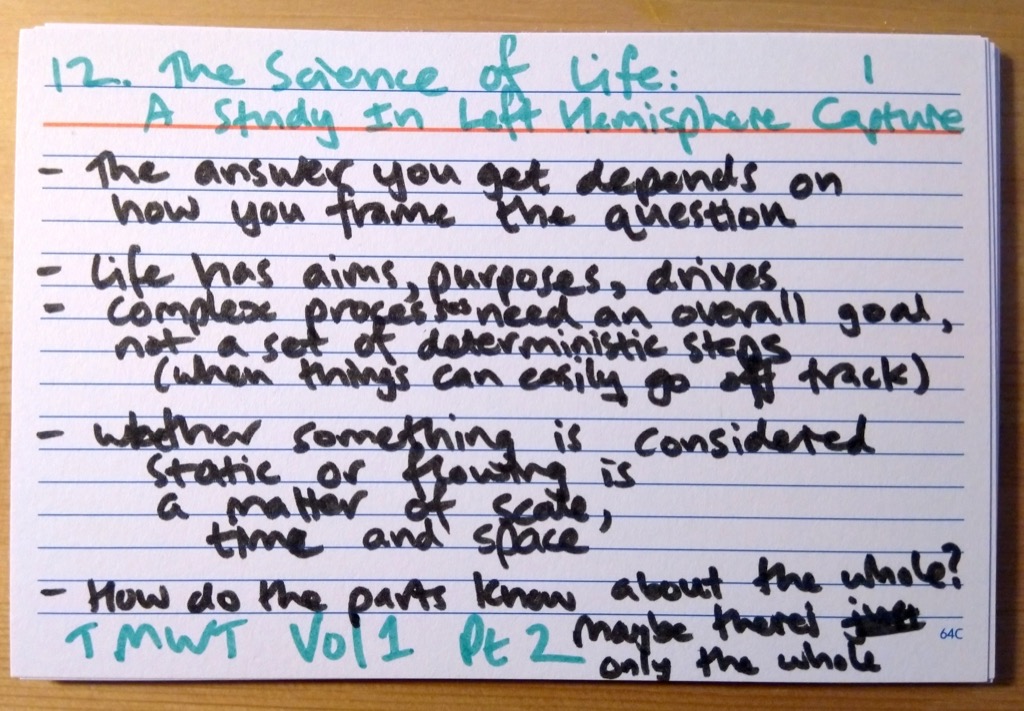 12. The Science of Life: 1
A Study In Left Hemisphere Capture
- The answer you get depends on
how you frame the question
- Life has aims, purposes, drives
- Complex processes need an overall goal,
not a set of deterministic steps
(when things can easily go off track)
- Whether something is considered
static or flowing is
a matter of scale,
time and space
- How do the parts know about the whole?
Maybe there's just
only the whole
TMWT Vol 1 Pt 2
64C